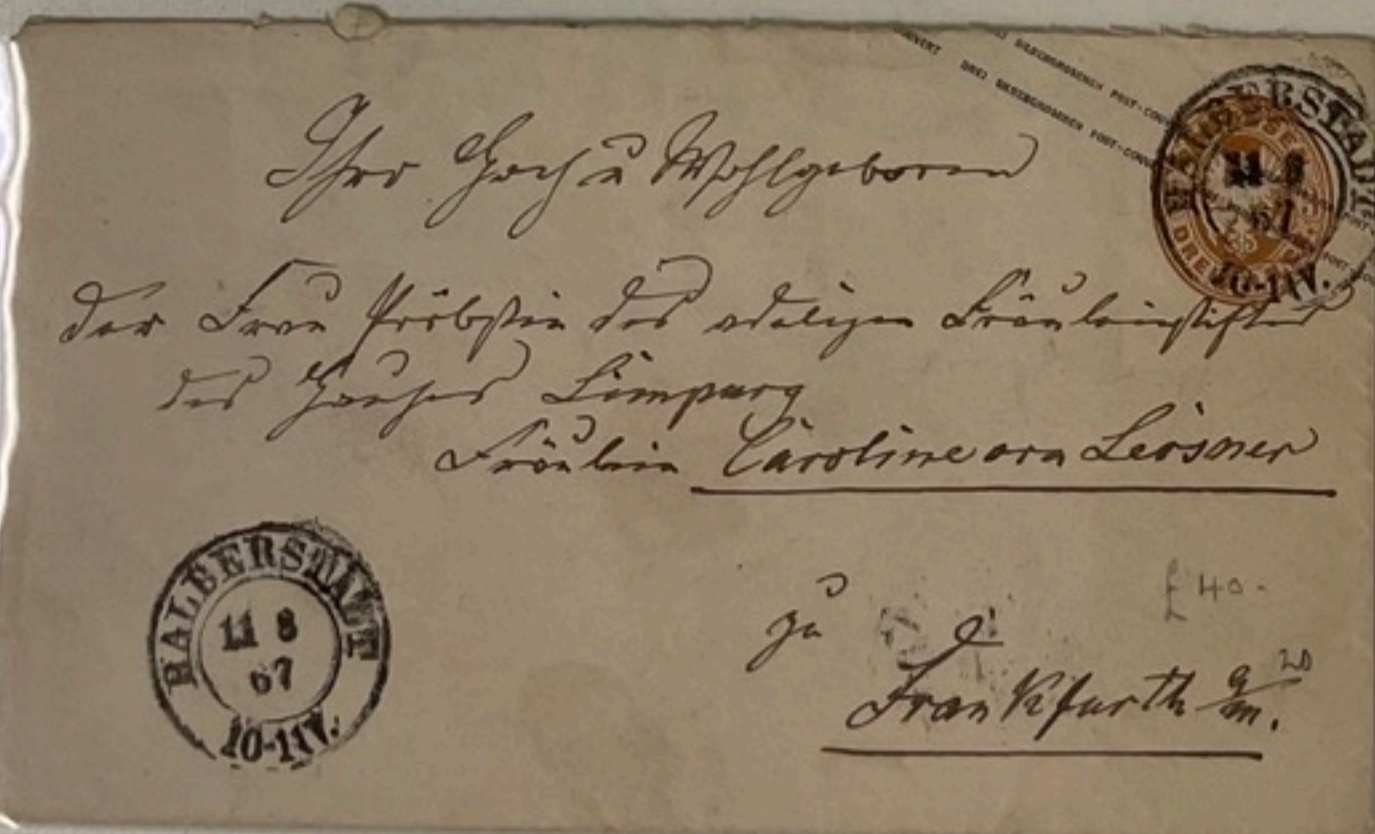 DREI SILBERGROSCHEN POST-COUVERT
HALBERSTADT
11 8
67
10-11 V.
DREI
Ihro Hoch u Wohlgeboren
der Frau Pröbstin des adeligen Fräuleinstiftes
des Hauses Limpurg
Fräulein Caroline von Leosner
HALBERSTADT
11 8
67
10-11 V.
£ 40-
zu
Frankfurth a/m.
20